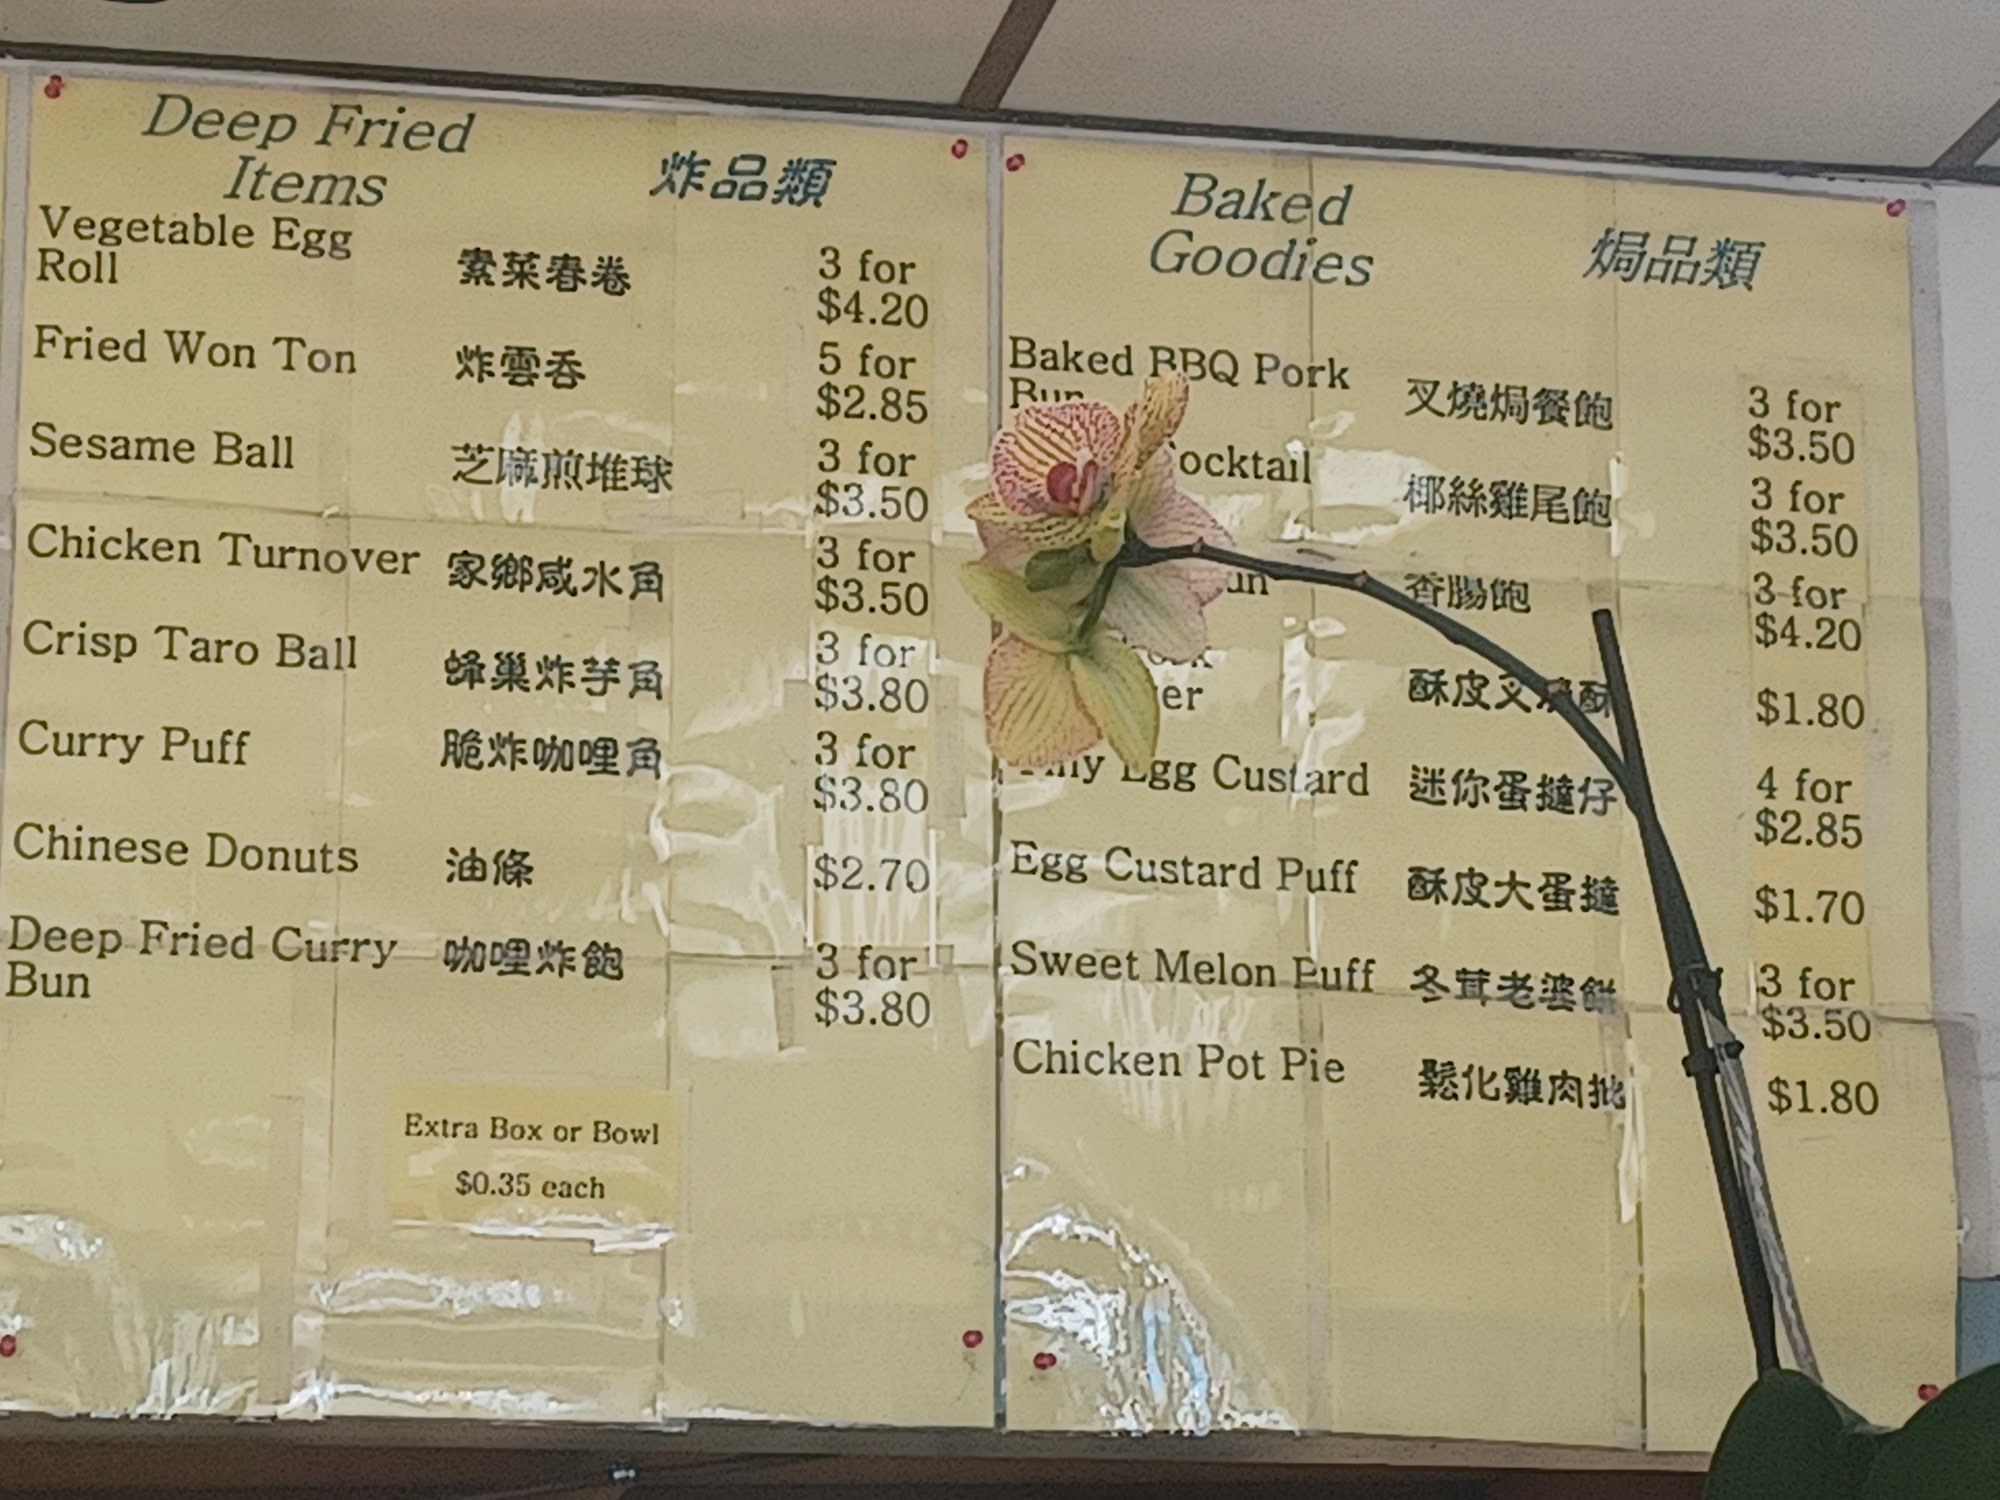 Deep Fried
Items
炸品類
Vegetable Egg
Roll
素菜春卷
3 for
$4.20
Fried Won Ton
炸雲吞
5 for
$2.85
Sesame Ball
芝麻煎堆球
3 for
$3.50
Chicken Turnover
家鄉咸水角
3 for
$3.50
Crisp Taro Ball
蜂巢炸芋角
3 for
$3.80
Curry Puff
脆炸咖哩角
3 for
$3.80
Chinese Donuts
油條
$2.70
Deep Fried Curry
Bun
咖哩炸飽
3 for
$3.80
Extra Box or Bowl
$0.35 each
Baked
Goodies
焗品類
Baked BBQ Pork
Bun
叉燒焗餐飽
3 for
$3.50
ocktail
椰絲雞尾飽
3 for
$3.50
un
香腸飽
3 for
$4.20
er
酥皮叉燒酥
$1.80
Egg Custard
迷你蛋撻仔
4 for
$2.85
Egg Custard Puff
酥皮大蛋撻
$1.70
Sweet Melon Puff
冬茸老婆餅
3 for
$3.50
Chicken Pot Pie
鬆化雞肉批
$1.80